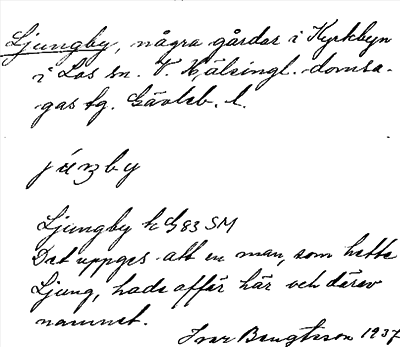 Ljungby, några gårdar i Kyrkbyn
i Los sn. V. Hälsingl. domsa-
gas tg. Gävleb. l.
júŋby
Ljungby h G83 SM
Det uppges att en man, som hette
Ljung, hade affär här och därav
namnet.
Ivar Bengtsson 1937